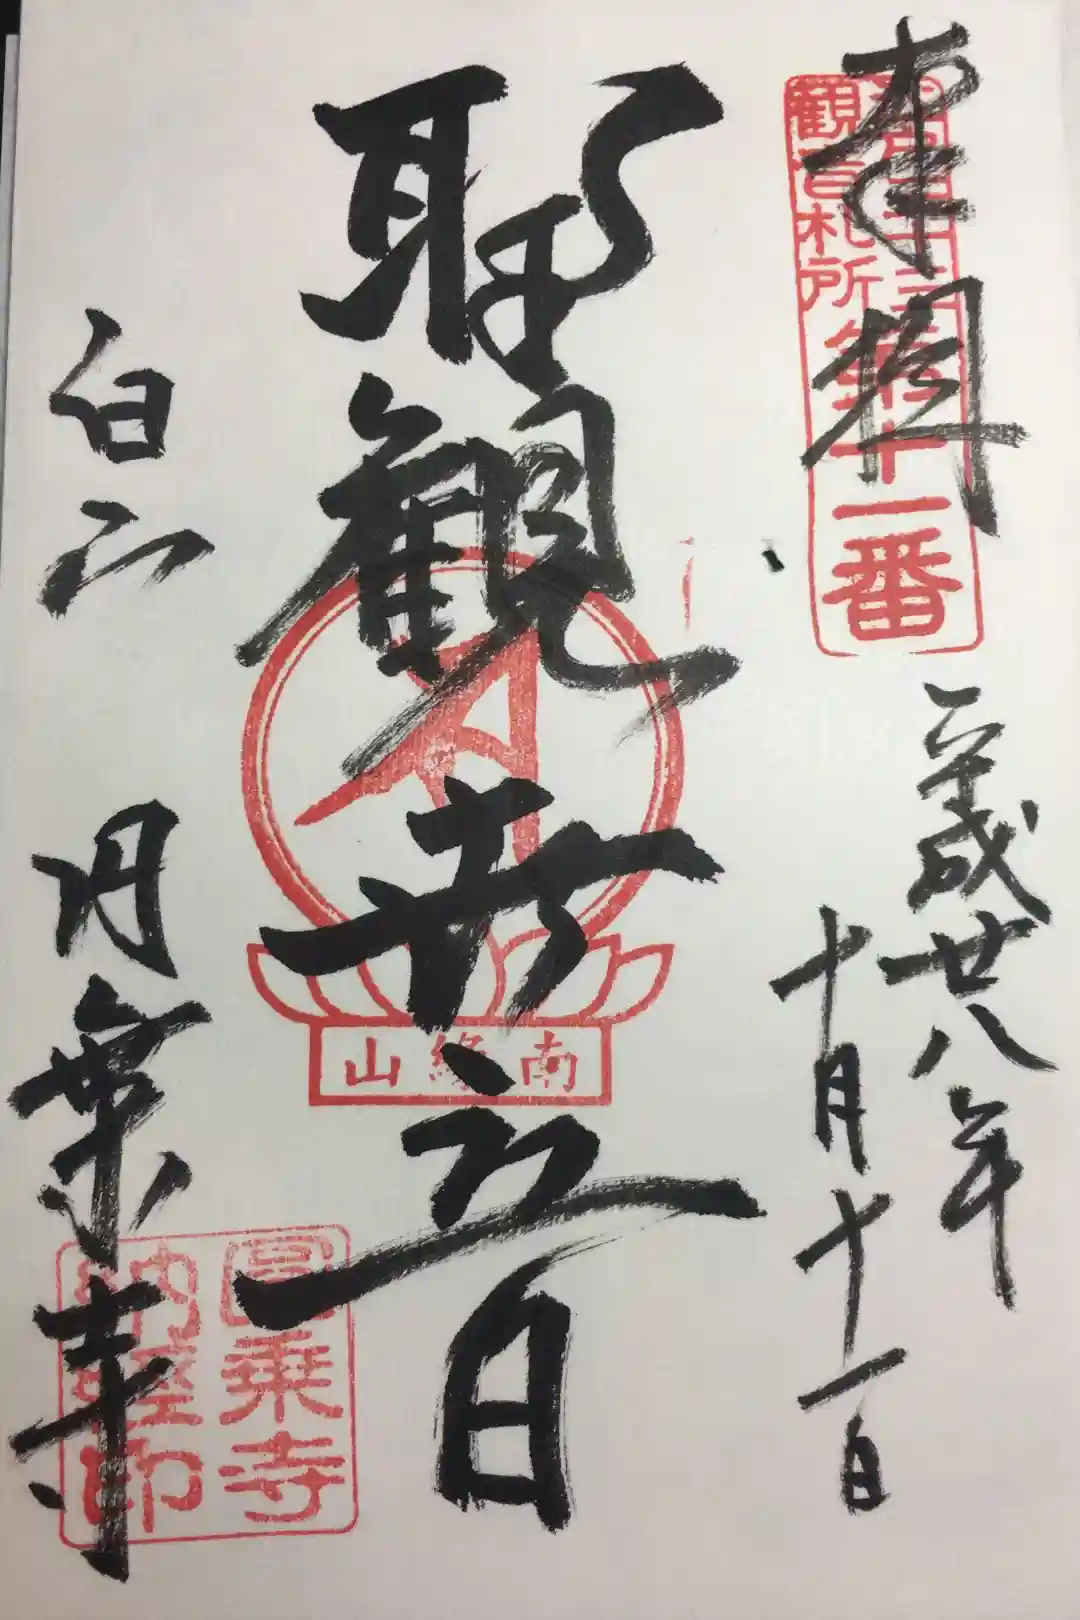 奉拝
江戸三十三
観音札所
第十一番
平成廿八年
十月十一日
聖観世音
南縁山
白山
円乗寺
圓乗寺
納経印